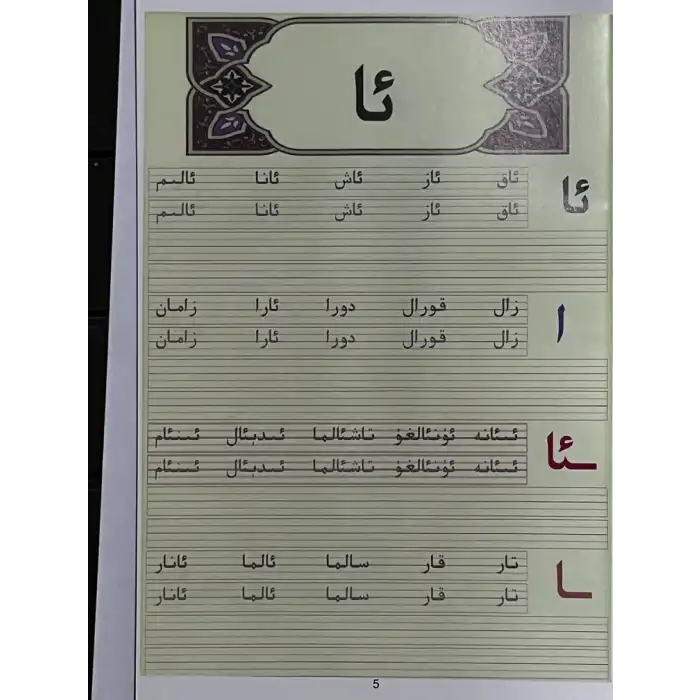 ئا
ئا
ئاق ئاز ئاش ئانا ئالىم
ئاق ئاز ئاش ئانا ئالىم
ا
زال قورال دورا ئارا زامان
زال قورال دورا ئارا زامان
ـئا
ئىئانە ئۈنئالغۇ تاشئالما ئىدىئال ئىنئام
ئىئانە ئۈنئالغۇ تاشئالما ئىدىئال ئىنئام
ـا
تار قار سالما ئالما ئانار
تار قار سالما ئالما ئانار
5